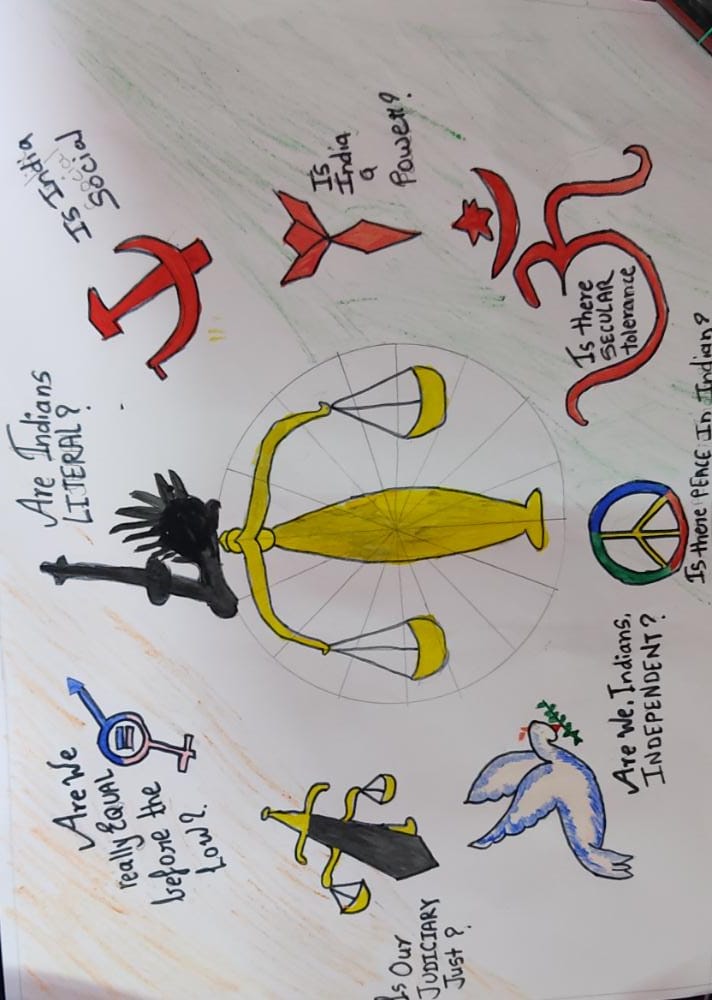 Are We
really EQUAL
before the
Low?
Are Indians
LITERAL?
Is India
Social
Is Our
JUDICIARY
Just?
Is
India
a
Power?
Are We, Indians,
INDEPENDENT?
Is there
SECULAR
tolerance
Is there PEACE In Indian?